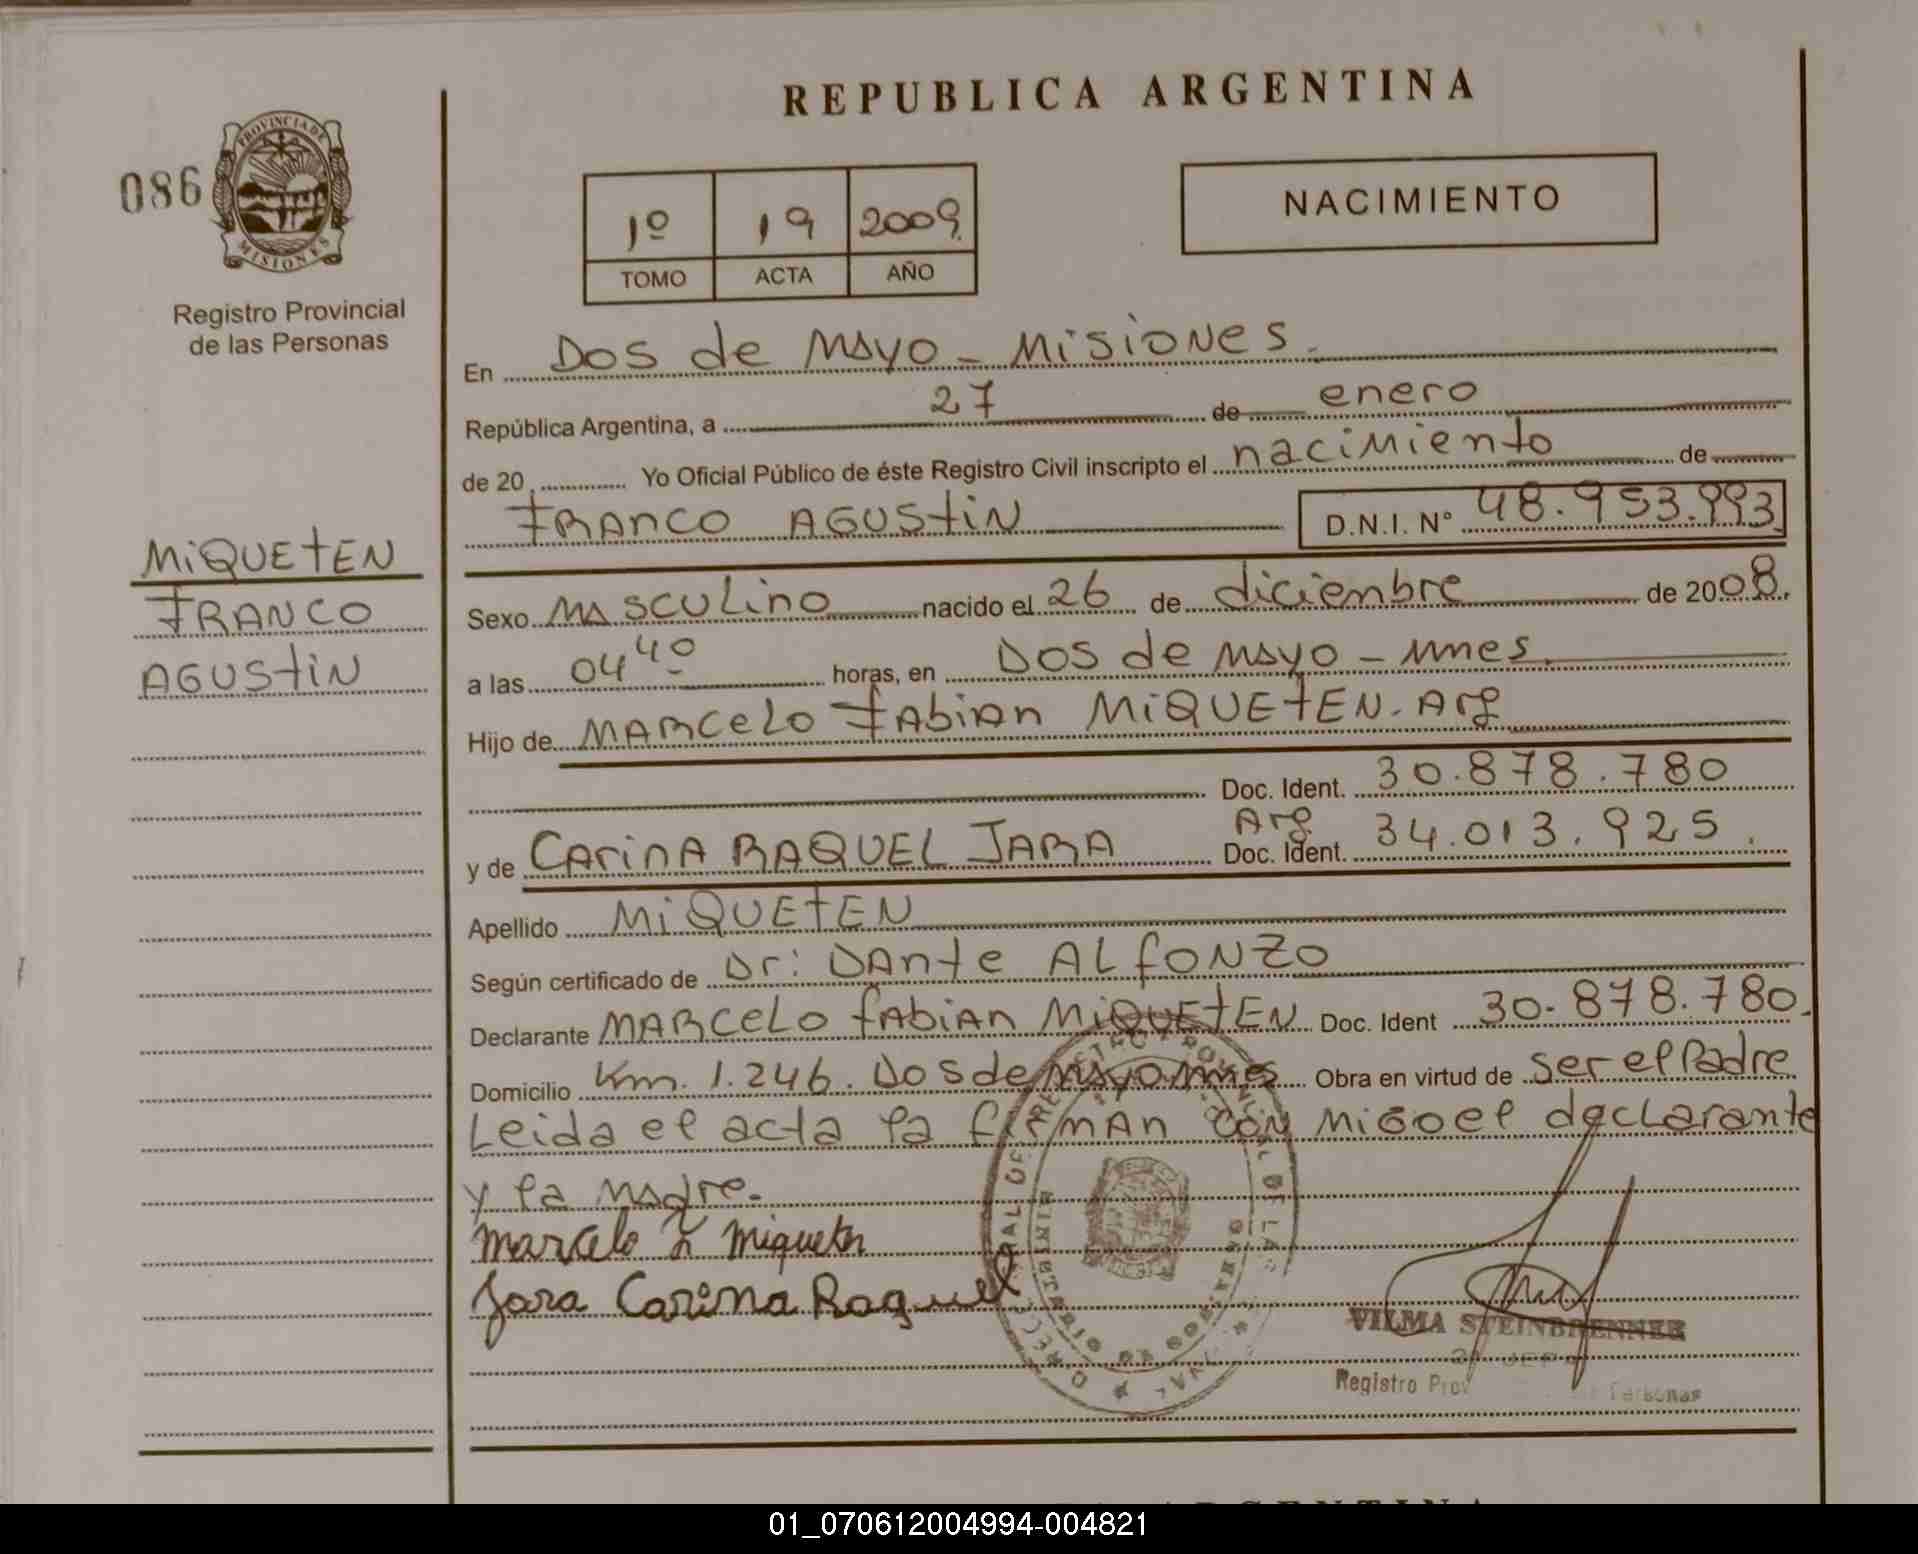 REPUBLICA ARGENTINA
086
PROVINCIA DE
MISIONES
Registro Provincial
de las Personas
1º 19 2009
TOMO ACTA AÑO
NACIMIENTO
En Dos de Mayo - Misiones.
República Argentina, a 27 de enero
de 20 Yo Oficial Público de éste Registro Civil inscripto el nacimiento de
FRANCO AGUSTIN D.N.I. Nº 48.953.993
MIQUETEN
FRANCO
AGUSTIN
Sexo Masculino nacido el 26 de diciembre de 2008.
a las 04 40 horas, en Dos de Mayo - Mnes.
Hijo de MARCELO FABIAN MIQUETEN. Arg
Doc. Ident. 30.878.780
y de CARINA RAQUEL JARA Arg Doc. Ident. 34.013.925.
Apellido MIQUETEN
Según certificado de Dr: DANTE ALFONZO
Declarante MARCELO FABIAN MIQUETEN Doc. Ident 30.878.780.
Domicilio Km. 1.246. Dos de Mayo Mnes Obra en virtud de ser el Padre
Leida el acta la firman con migo el declarante
y la madre.
Marcelo F Miqueten
Jara Carina Raquel
VILMA STEINBRENNER
Registro Personas
01_070612004994-004821